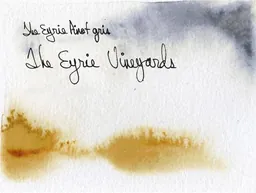 The Eyrie Pinot gris
The Eyrie Vineyards